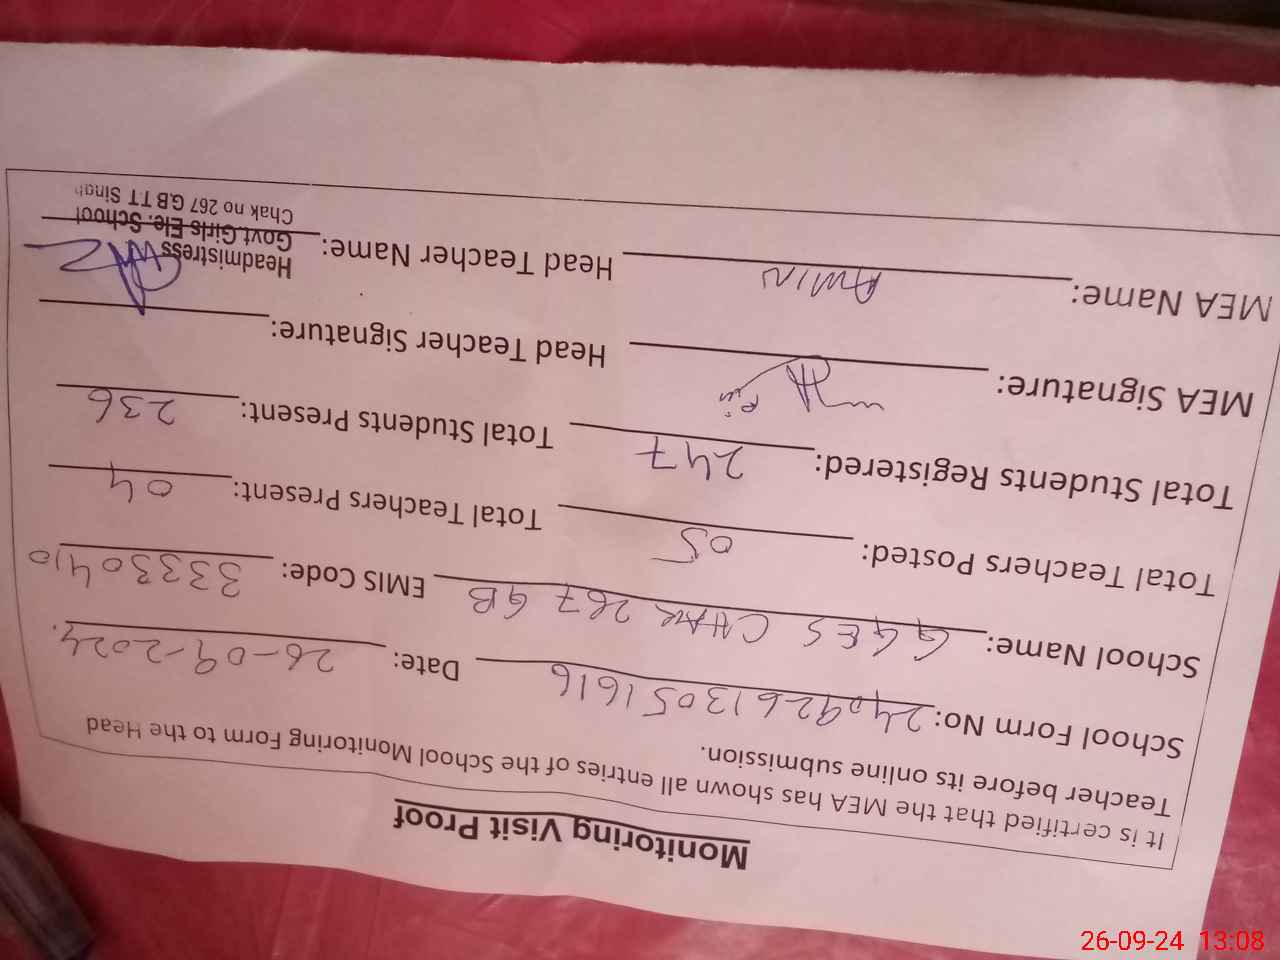 Monitoring Visit Proof
It is certified that the MEA has shown all entries of the School Monitoring Form to the Head
Teacher before its online submission.
School Form No: 240926130516 16 Date: 26-09-2024.
School Name: GGES CHAK 267 GB EMIS Code: 33330410
Total Teachers Posted: 05 Total Teachers Present: 04
Total Students Registered: 247 Total Students Present: 236
MEA Signature: Head Teacher Signature:
MEA Name: AMIN Head Teacher Name:
Headmistress
Govt. Girls Ele. School
Chak no 267 G.B T.T Singh
26-09-24 13:08